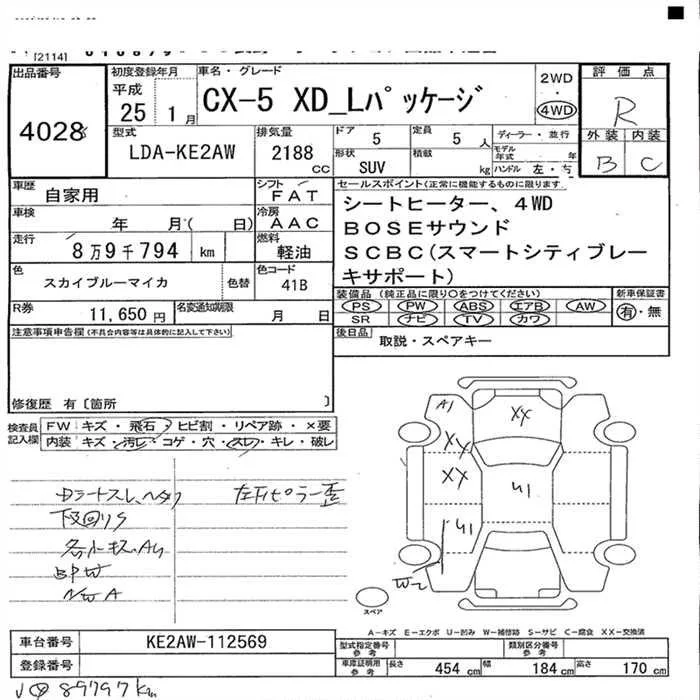 [2114]
出品番号
4028
初度登録年月
平成
25 1 月
車名・グレード
CX-5 XD_Lパッケージ
2WD
4WD
評価点
R
外装 内装
B C
型式
LDA-KE2AW
排気量
2188
CC
ドア
5
定員
5 人
形状
SUV
積載
kg
ディーラー・並行
モデル年式 年
ハンドル 左・右
車歴
自家用
シフト
FAT
車検
年 月( 日)
冷房
AAC
走行
8万9千794 km
燃料
軽油
色
スカイブルーマイカ
色替
色コード
41B
R券
11,650 円
名変通知期限
月 日
セールスポイント(正常に機能するものに限ります)
シートヒーター、4WD
BOSEサウンド
SCBC(スマートシティブレー
キサポート)
装備品 (純正品に限り〇をつけてください)
PS PW ABS エアB AW
SR ナビ TV カワ
新車保証書
有・無
後日品
取説・スペアキー
注意事項申告欄(不具合内容等は具体的に記入して下さい)
修復歴 有〔箇所 〕
検査員
記入欄
FW キズ・飛石・ヒビ割・リペア跡・×要
内装 キズ・汚レ・コゲ・穴・スレ・キレ・破レ
左下ピラー歪
下回りS
NWA
A1
XX
XX
XX
U1
U1
W2
スペア
A-キズ E-エクボ U-凹み W-補修跡 S-サビ C-腐食 XX-交換済
車台番号
KE2AW-112569
登録番号
型式指定番号
参考
類別区分番号
参考
車庫証明用
参考
長さ 454 cm 幅 184 cm 高さ 170 cm
89797km